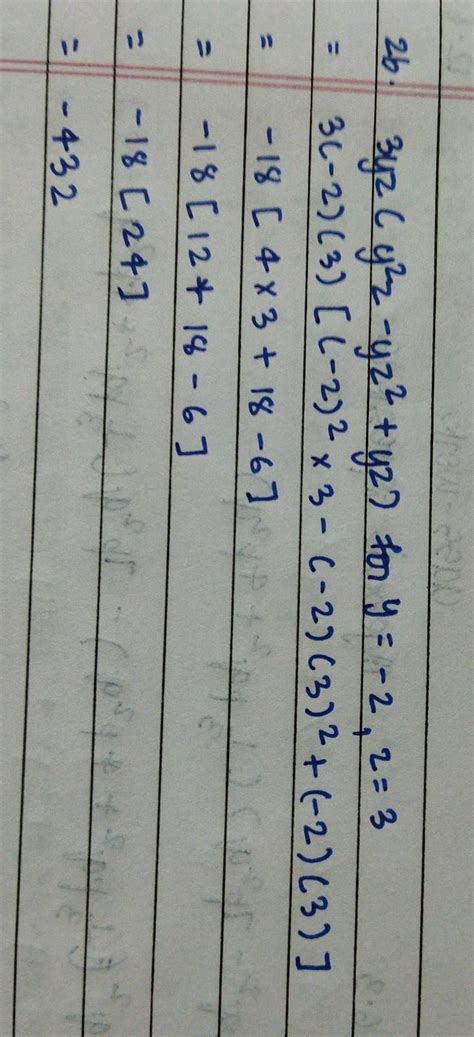 2b. 3yz (y²z - yz² + yz) for y = -2, z = 3
= 3(-2)(3) [(-2)² × 3 - (-2)(3)² + (-2)(3)]
= -18 [4 × 3 + 18 - 6]
= -18 [12 + 18 - 6]
= -18 [24]
= -432